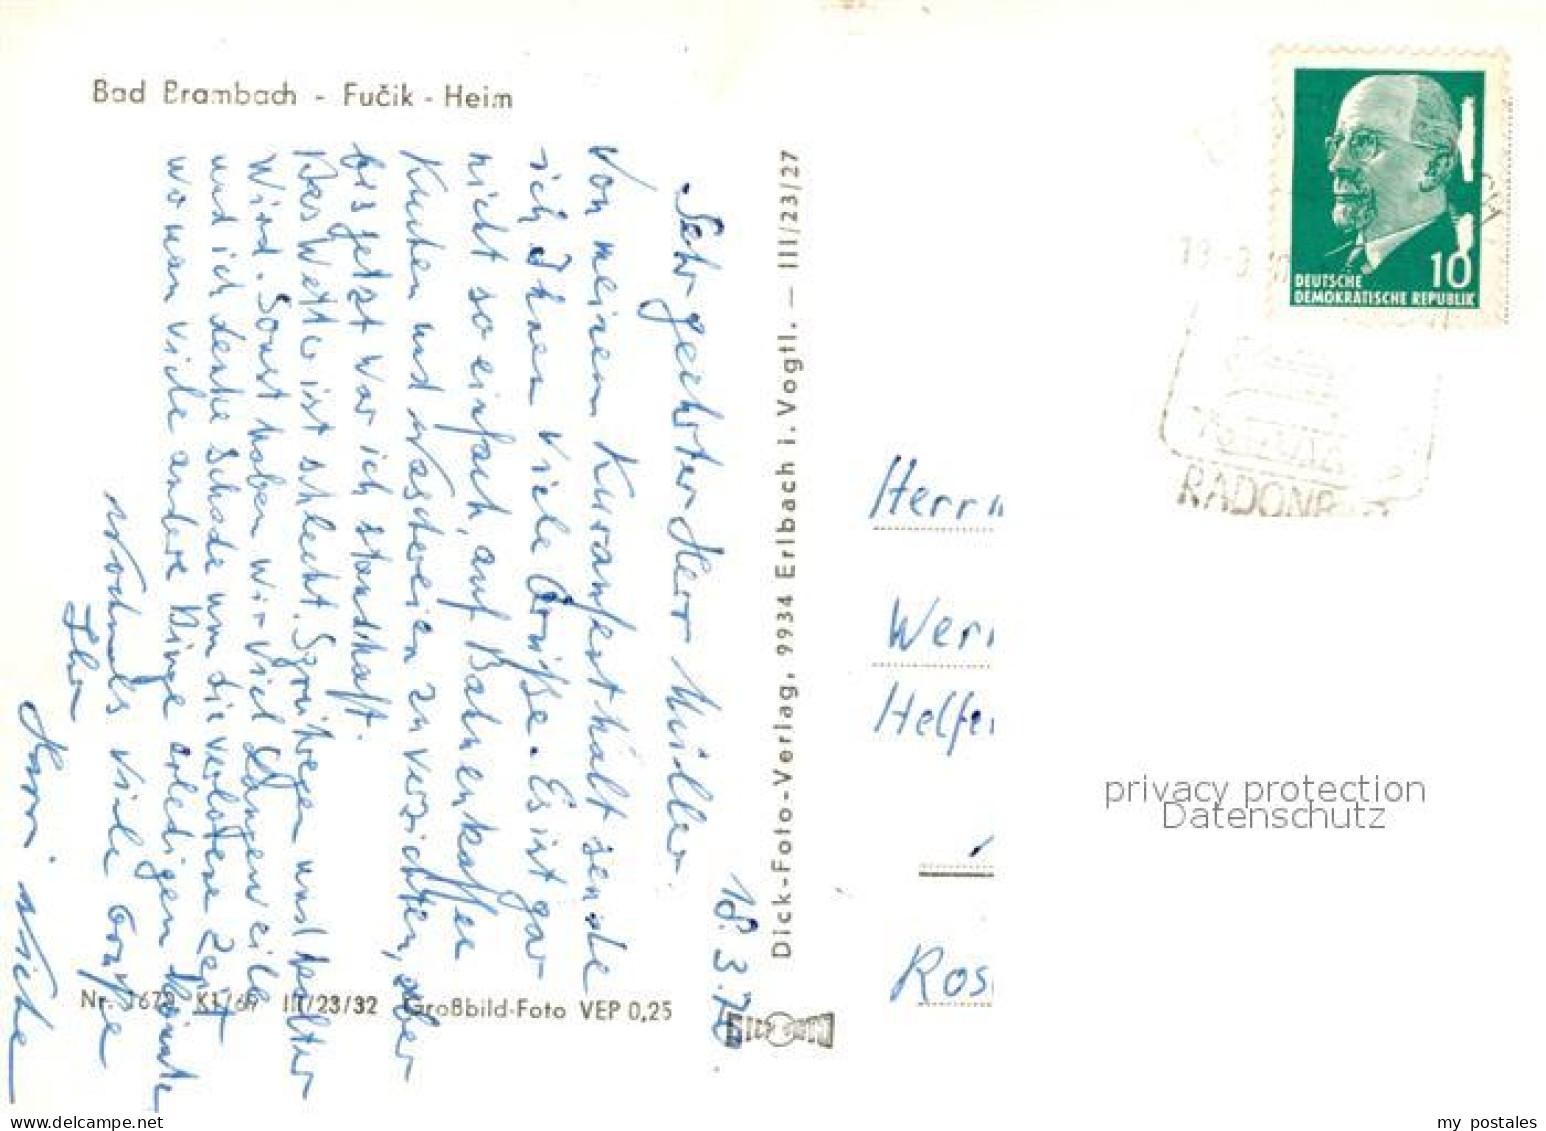 Bad Brambach - Fučik - Heim
18.3.70.
Sehr geehrter Herr Müller.
Von meinem Kuraufenthalt sende
ich Ihnen viele Grüße. Es ist gar
nicht so einfach, auf Bohnenkaffee
Kuchen und Naschereien zu verzichten, aber
bis jetzt war ich standhaft.
Das Wetter ist schlecht. Sprühregen und kalter
Wind. Sonst haben wir viel Langeweile
und ich denke schade um die verlorene Zeit
wo man viele andere Dinge erledigen könnte
Nochmals viele Grüße
Ihr
Nr. 1679 K1/69 III/23/32 Großbild-Foto VEP 0,25
Dick-Foto-Verlag, 9934 Erlbach i. Vogtl. — III/23/27
DEUTSCHE
DEMOKRATISCHE REPUBLIK
10
RADONB
Herrn
Wern
Helfe
Ros
privacy protection
Datenschutz
my postales